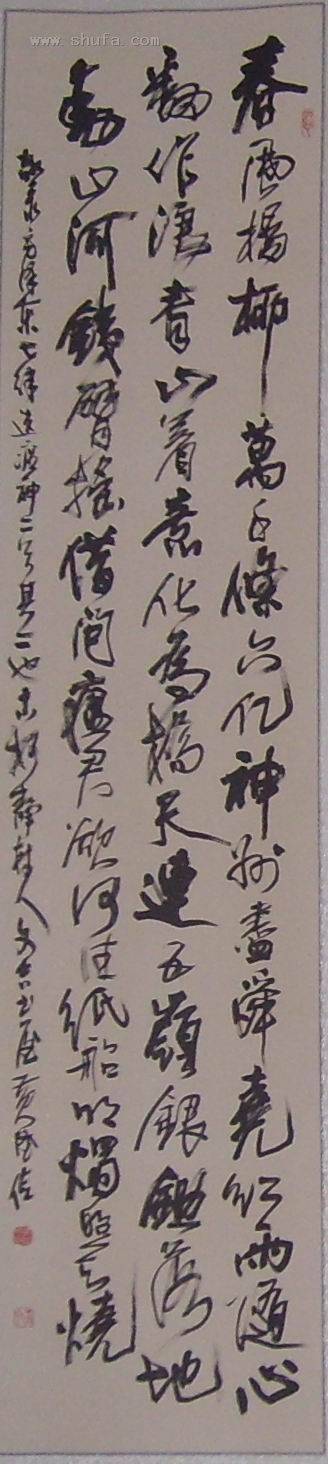 www.shufa.com
春風楊柳萬千條六亿神州盡舜堯紅雨隨心
翻作浪青山着意化為橋天連五嶺銀鋤落地
動山河鐵臂搖借問瘟君欲何往紙船明燭照天燒
敬录毛泽东七律送瘟神二首其二也